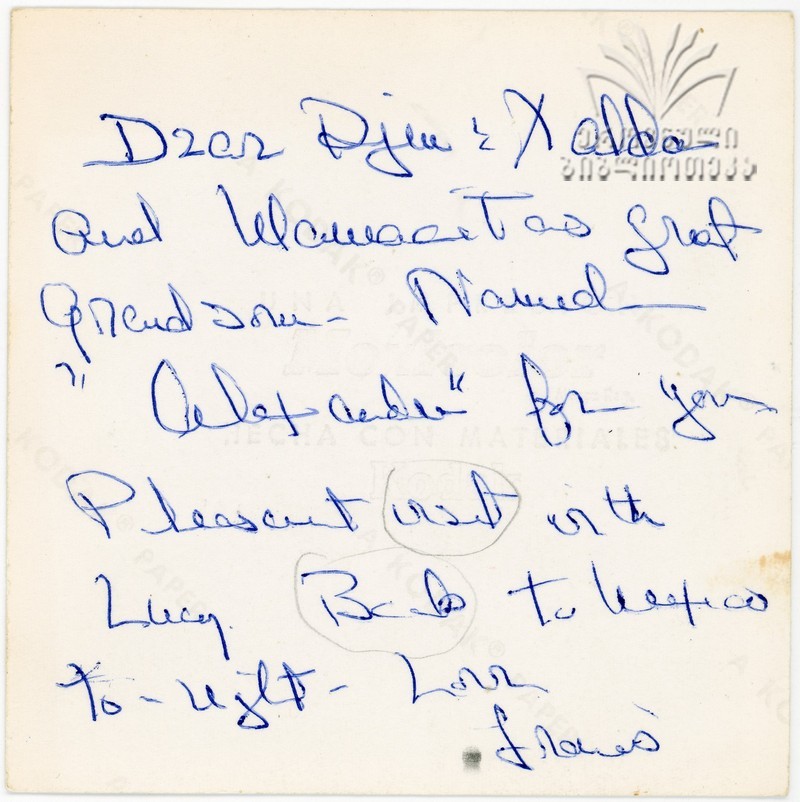 Dear Djim & Xalda
and Mamacitas great
Grandson - Named
"Alexander" for you
Pleasant visit with
Lucy. Back to Mexico
to-night - Love
Francis
ეროვნული
ბიბლიოთეკა
UNA
HECHA CON MATERIALES
Kodak
A KODAK® PAPER